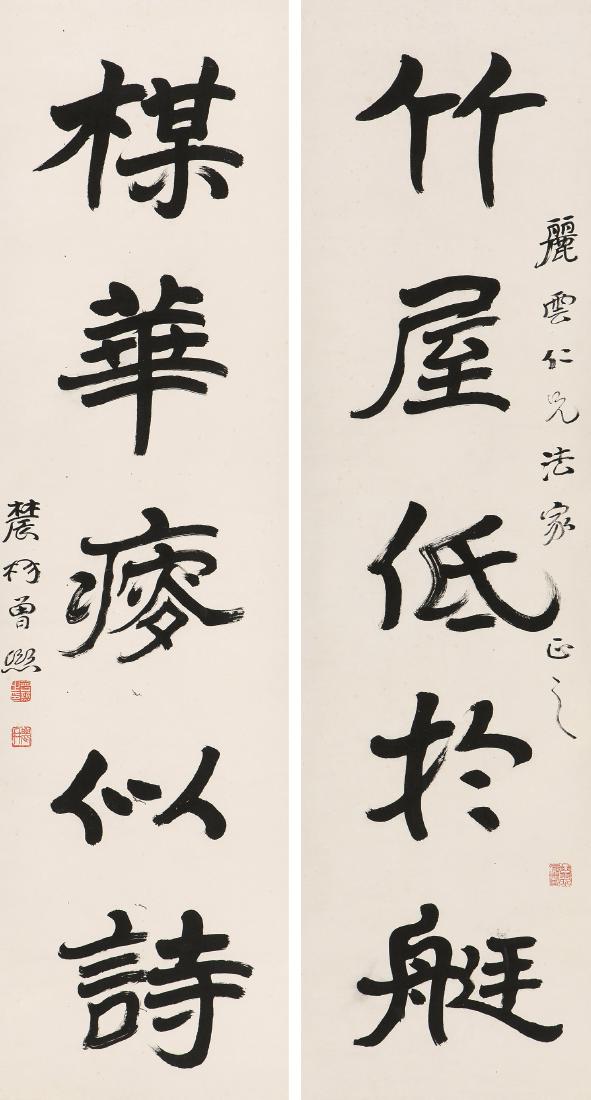 麗雲仁兄法家正之
竹屋低於艇
楳華瘮似詩
農髯曾熙